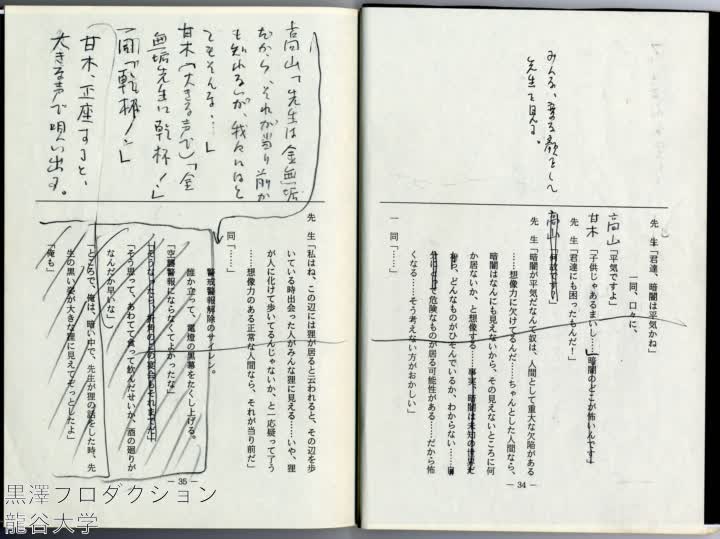 みんな、異る顔をして
先生を見る。
先生「君達、暗闇は平気かね」
一同、口々に、
高山「平気ですよ」
甘木「子供じゃあるまいし……」暗闇のどこが怖いんです」
先生「君達にも困ったもんだ！」
高山「何故です。」
先生「暗闇が平気だなんて奴は、人間として重大な欠陥がある
……想像力に欠けてるんだ……ちゃんとした人間なら、
暗闇はなんにも見えないから、その見えないところに何
か居ないか、と想像する……事実、暗闇は未知の世界だ
から、どんなものがひそんでいるか、わからない……
危険なものが居る可能性がある……だから怖
くなる……そう考えない方がおかしい」
一同「……」
― 34 ―
高山「先生は金無垢
だから、それが当り前か
も知れないが、我々にはと
てもそんな……」
甘木（大きな声で）「金
無垢先生に乾杯！」
一同「乾杯！」
甘木、正座すると、
大きな声で唄い出す。
先生「私はね、この辺には狸が居ると云われると、その辺を歩
いている時出会った人がみんな狸に見える……いや、狸
が人に化けて歩いてるんじゃないか、と一応疑って了う
……想像力のある正常な人間なら、それが当り前だ」
一同「……」
警戒警報解除のサイレン。
誰か立って、電燈の黒幕をたくし上げる。
「空襲警報にならなくてよかったな」
「そうなったら、折角のこの宴会もそれまでだ」
「そう思って、あわてて食って飲んだせいが、酒の廻りが
なんだか早いな」
「ところで、俺は、暗い中で、先生が狸の話をした時、先
生の黒い姿が大きな狸に見えてぞっとしたよ」
「俺も」
― 35 ―
黒澤プロダクション
龍谷大学